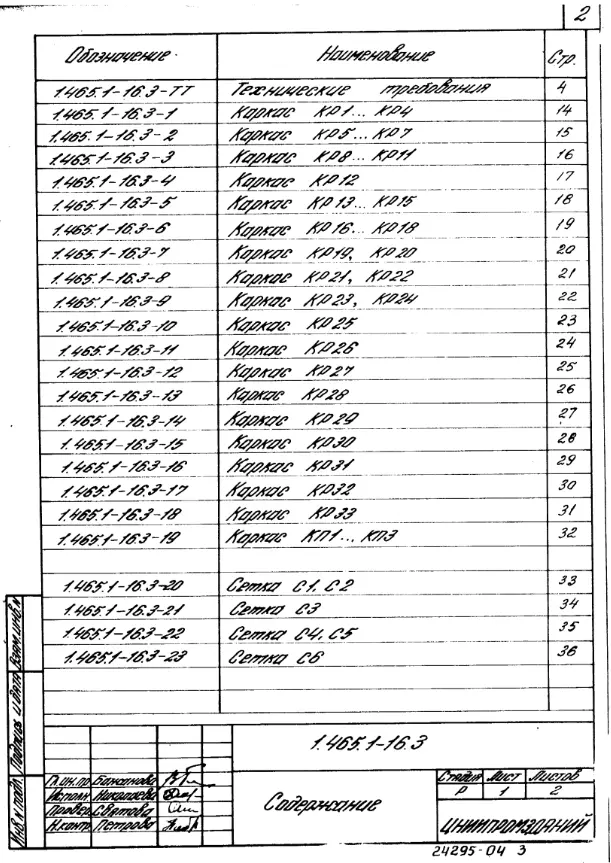 2
Обозначение Наименование Стр.
1.465.1-16.3-ТТ Технические требования 4
1.465.1-16.3-1 Каркас КР1... КР4 14
1.465.1-16.3-2 Каркас КР5... КР7 15
1.465.1-16.3-3 Каркас КР8... КР11 16
1.465.1-16.3-4 Каркас КР12 17
1.465.1-16.3-5 Каркас КР13... КР15 18
1.465.1-16.3-6 Каркас КР16... КР18 19
1.465.1-16.3-7 Каркас КР19, КР20 20
1.465.1-16.3-8 Каркас КР21, КР22 21
1.465.1-16.3-9 Каркас КР23, КР24 22
1.465.1-16.3-10 Каркас КР25 23
1.465.1-16.3-11 Каркас КР26 24
1.465.1-16.3-12 Каркас КР27 25
1.465.1-16.3-13 Каркас КР28 26
1.465.1-16.3-14 Каркас КР29 27
1.465.1-16.3-15 Каркас КР30 28
1.465.1-16.3-16 Каркас КР31 29
1.465.1-16.3-17 Каркас КР32 30
1.465.1-16.3-18 Каркас КР33 31
1.465.1-16.3-19 Каркас КП1... КП3 32
1.465.1-16.3-20 Сетка С1, С2 33
1.465.1-16.3-21 Сетка С3 34
1.465.1-16.3-22 Сетка С4, С5 35
1.465.1-16.3-23 Сетка С6 36
Взам.инв.№
Подпись и дата
Инв.№ подл.
1.465.1-16.3
Гл.ин.пр.
Исполн.
Провер. Святова
Н.контр. Петрова
Содержание
Стадия Лист Листов
Р 1 2
ЦНИИПРОМЗДАНИЙ
24295-04 3